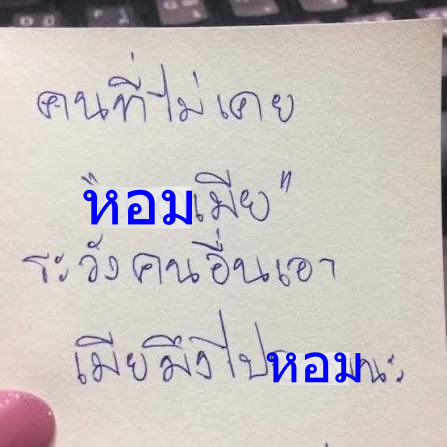 คนที่ไม่เคย
"หอมเมีย"
ระวังคนอื่นเอา
เมียมึงไปหอมนะ